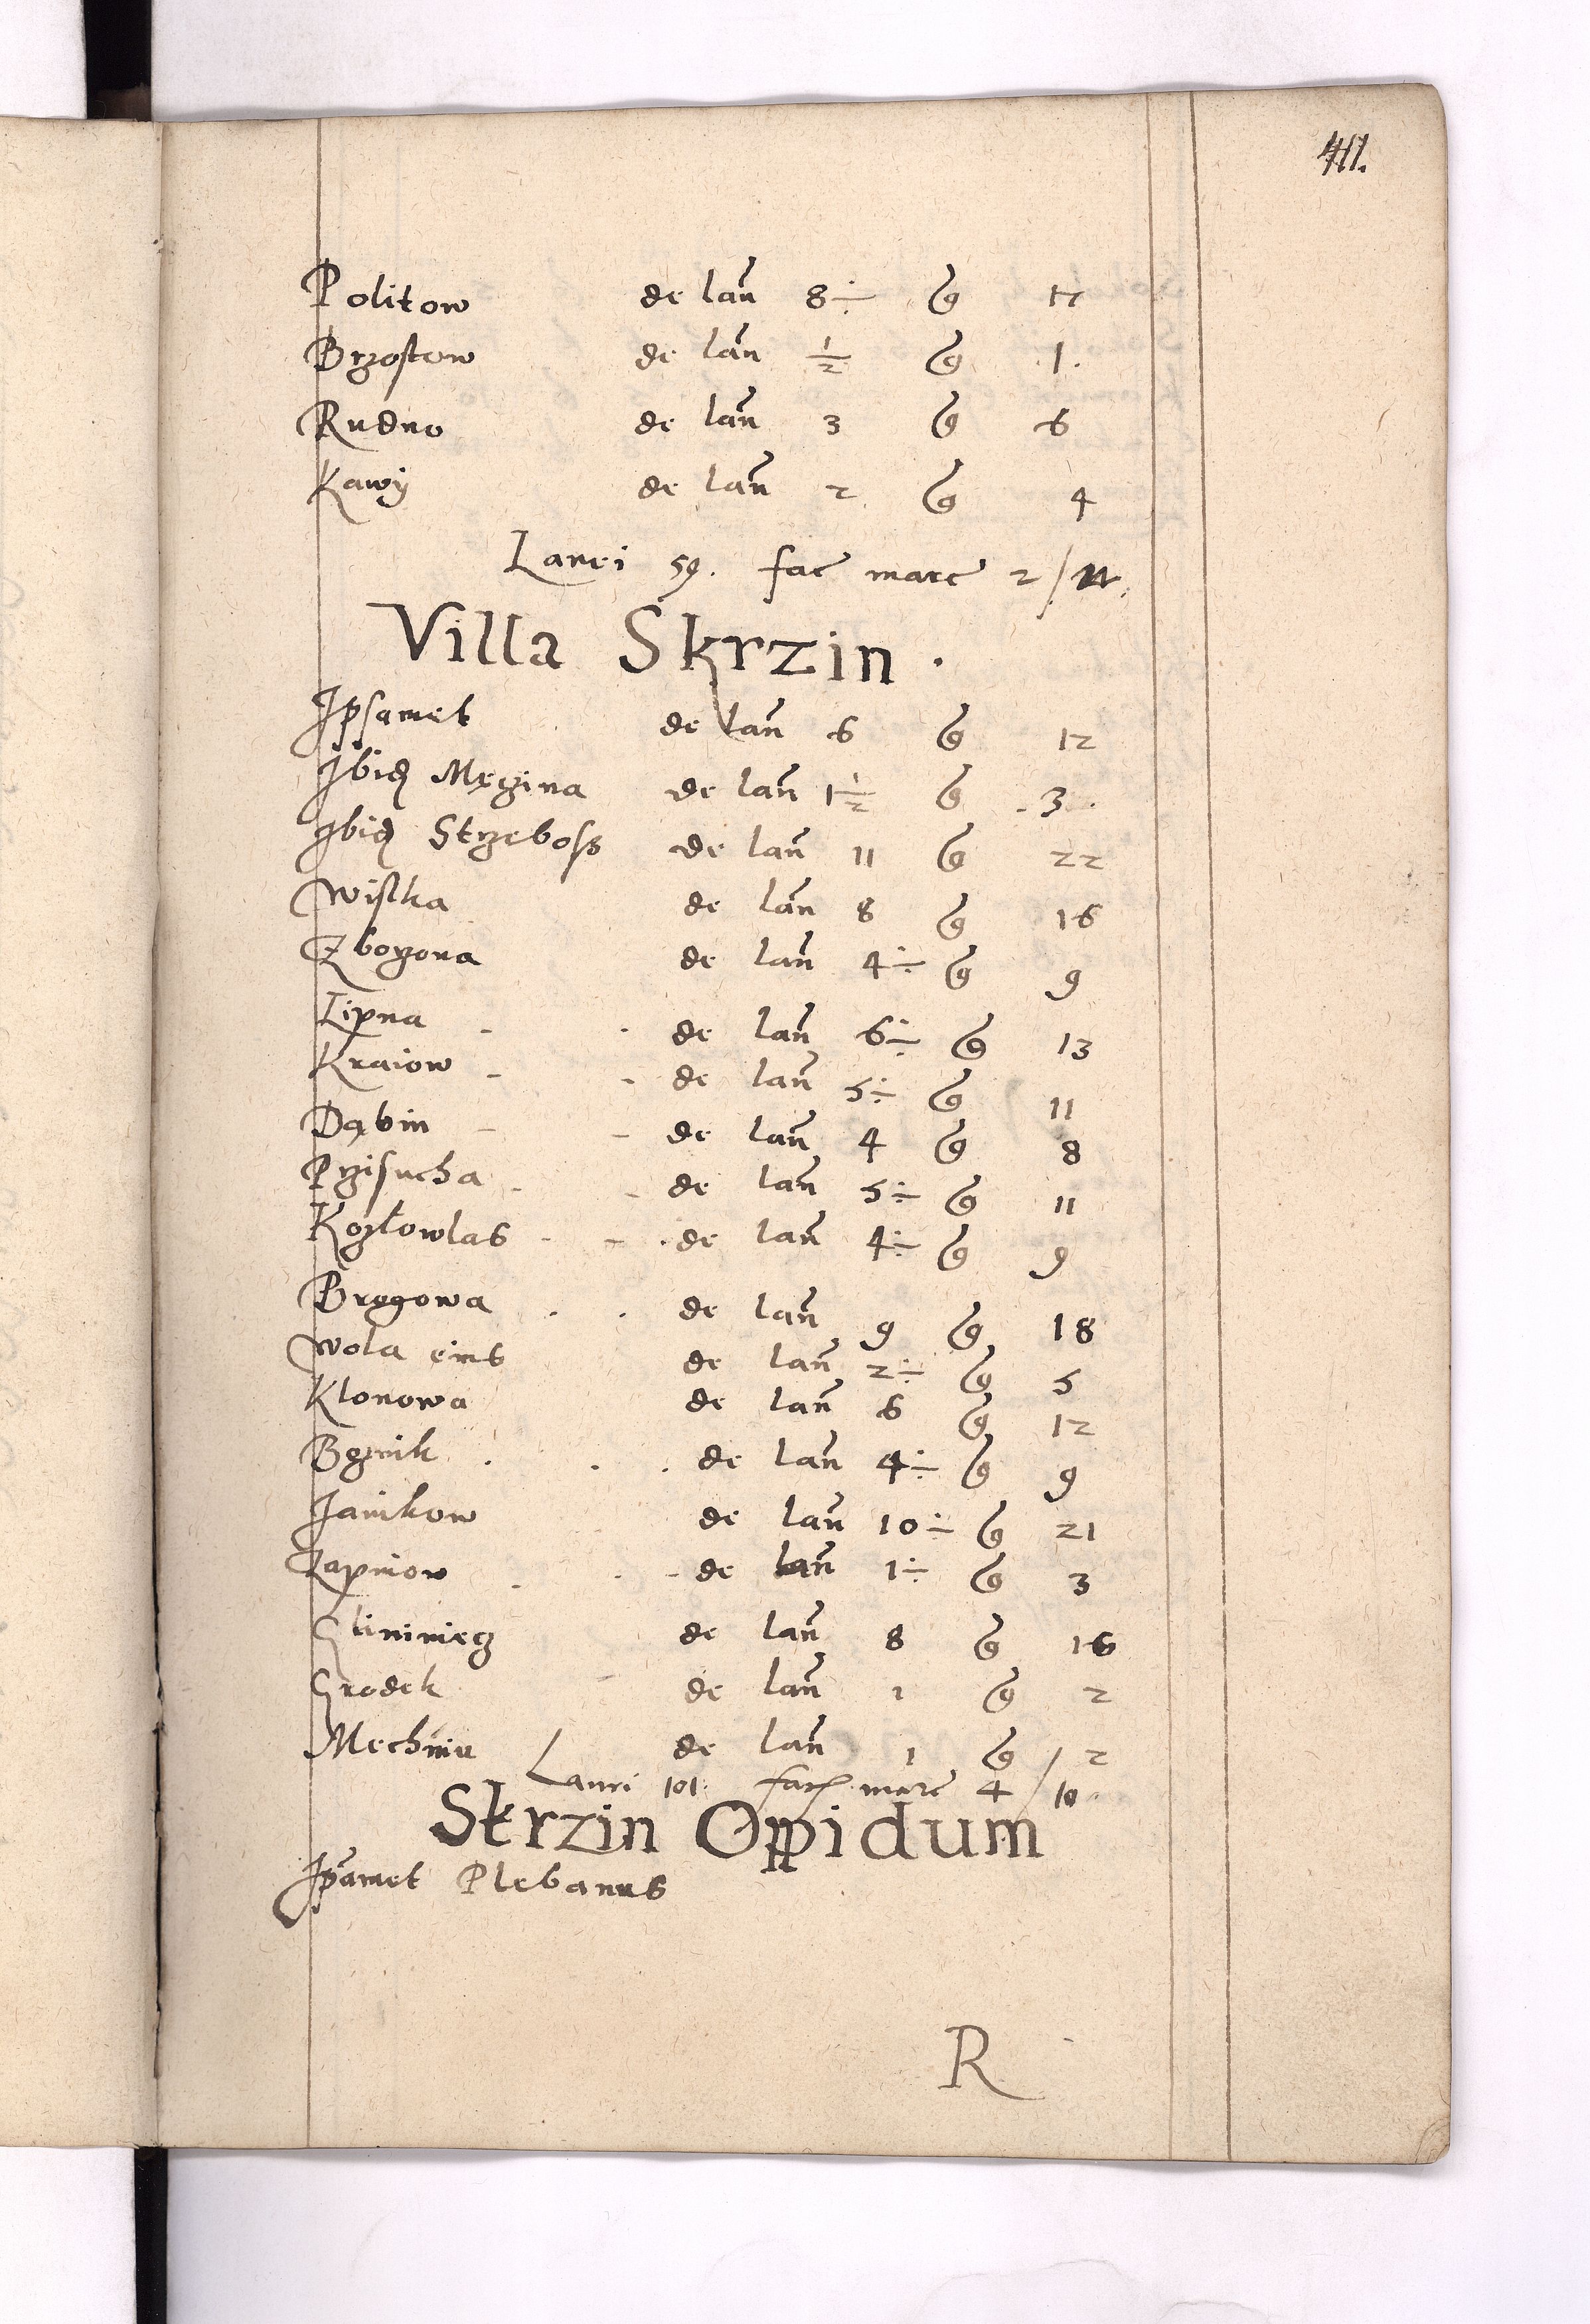 411.
Politow de lan̄ 8 ÷ g 17
Brzostow de lan̄ 1/2 g 1.
Rudno de lan̄ 3 g 6
Kawÿ de lan̄ 2 g 4
Lanei 59. fac marc 2/
Villa Skrzin.
Jpsamet de lan̄ 6 g 12
Jbid Męzina de lan̄ 1 1/2 g 3
Jbid Strzeboss de lan̄ 11 g 22
Wistka de lan̄ 8 g 16
Zboyona de lan̄ 4 ÷ g 9
Lipna de lan̄ 6 ÷ g 13
Kraiow de lan̄ 5 ÷ g 11
Dąbin de lan̄ 4 g 8
Przisucha de lan̄ 5 ÷ g 11
Kozłowlas de lan̄ 4 ÷ g 9
Brogowa de lan̄ 9 g 18
Wola eius de lan̄ 2 ÷ g 5
Klonowa de lan̄ 6 g 12
de lan̄ 4 ÷ g 9
Janikow de lan̄ 10 ÷ g 21
Zapniow de lan̄ 1 ÷ g 3
Glinniecz de lan̄ 8 g 16
Grodek de lan̄ 1 g 2
Mechnia de lan̄ 1 g 2
Lanei 101. fac marc 4/10.
Skrzin Oppidum
Jpsamet Plebanus
R